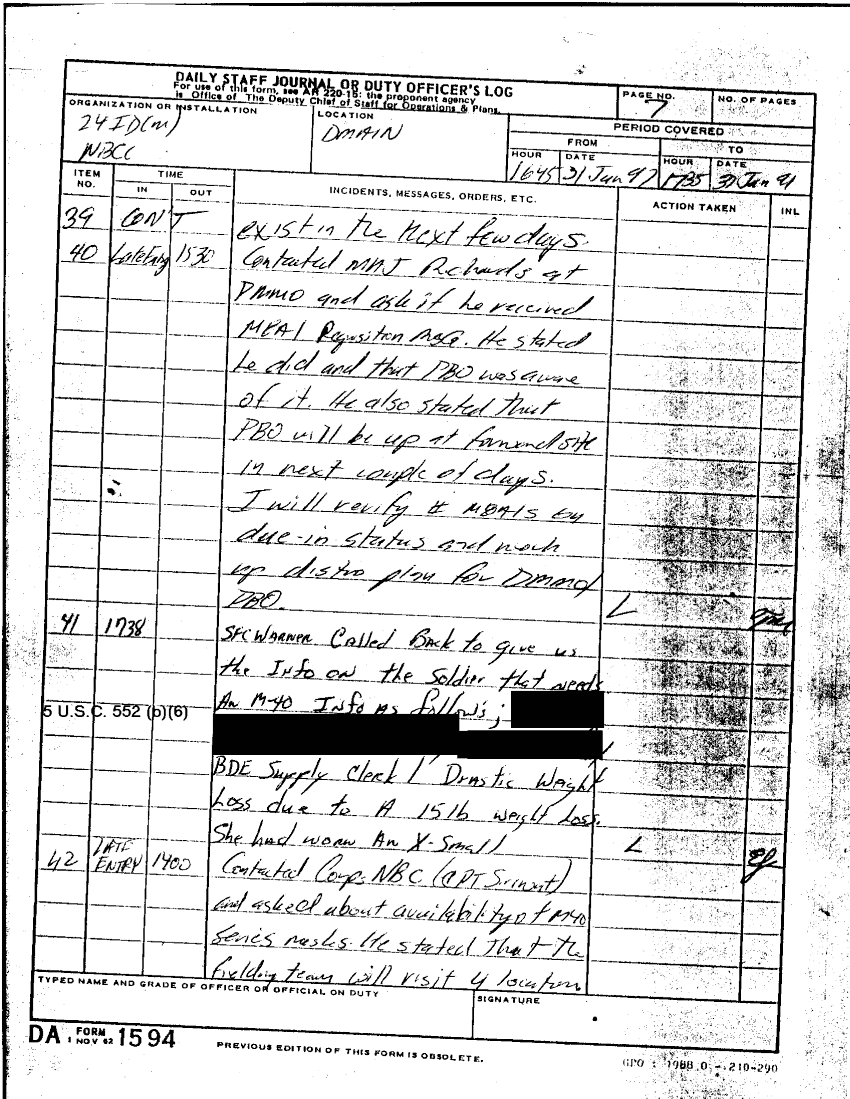 DAILY STAFF JOURNAL OR DUTY OFFICER'S LOG
For use of this form, see AR 220-15; the proponent agency
is Office of The Deputy Chief of Staff for Operations & Plans.
PAGE NO.
7
NO. OF PAGES
ORGANIZATION OR INSTALLATION
24 ID(M)
NBCC
LOCATION
DMAIN
PERIOD COVERED
FROM
TO
HOUR
DATE
HOUR
DATE
1645 31 Jan 91 1735 31 Jan 91
ITEM NO.
TIME
IN
OUT
INCIDENTS, MESSAGES, ORDERS, ETC.
ACTION TAKEN
INL
39 CON'T exist in the next few days.
40 Late Entry 1530 Contacted MAJ Richards at
DMMO and ask if he received
M8A1 Requisition msg. He stated
he did and that PBO was aware
of it. He also stated that
PBO will be up at forward site
in next couple of days.
I will verify # M8A1s by
due-in status and work
up distro plan for DMMO/
PBO. L
41 1738 SFC Warner Called Back to give us
the Info on the Soldier that needs
An M-40 Info as follows;
5 U.S.C. 552 (b)(6)
BDE Supply Clerk / Drastic Weight
Loss due to A 15 lb weight loss.
She had worn An X-Small L
42 LATE ENTRY 1400 Contacted Corps NBC (CPT
and asked about availability of M40
series masks. He stated that the
fielding team will visit 4 location
TYPED NAME AND GRADE OF OFFICER OR OFFICIAL ON DUTY
SIGNATURE
DA FORM 1 NOV 62 1594
PREVIOUS EDITION OF THIS FORM IS OBSOLETE.
GPO : 1988 0 - 210-290